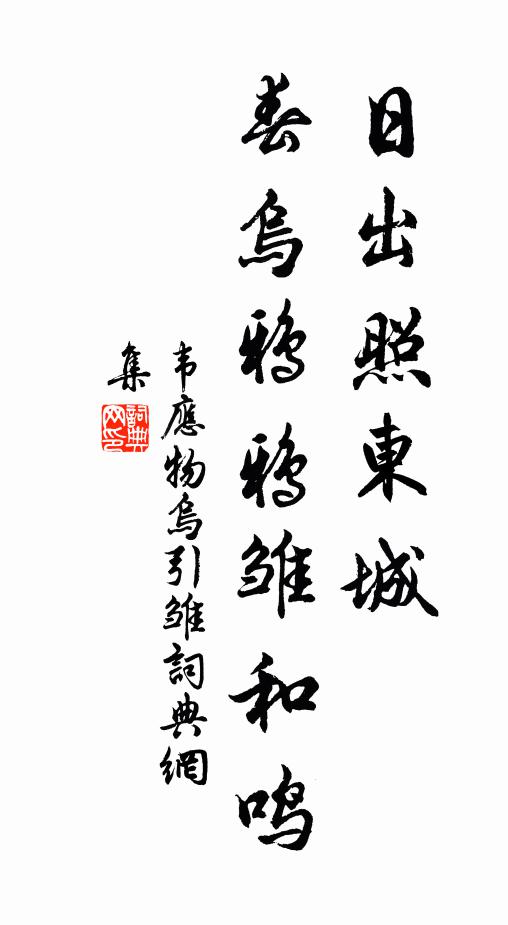 日出照東城
春烏鴉鴉雏和鸣
韦應物烏引雏詞典網
集
詞典网印